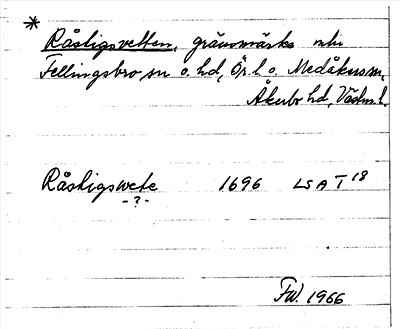 *
Råstigsvetten, gränsmärke mln
Fellingsbro sn o. hd, Ör. l. o. Medåkers sn,
Åkerbo hd, Västm. l.
Råstigswete 1696 LSA T 18
-?-
FW. 1966